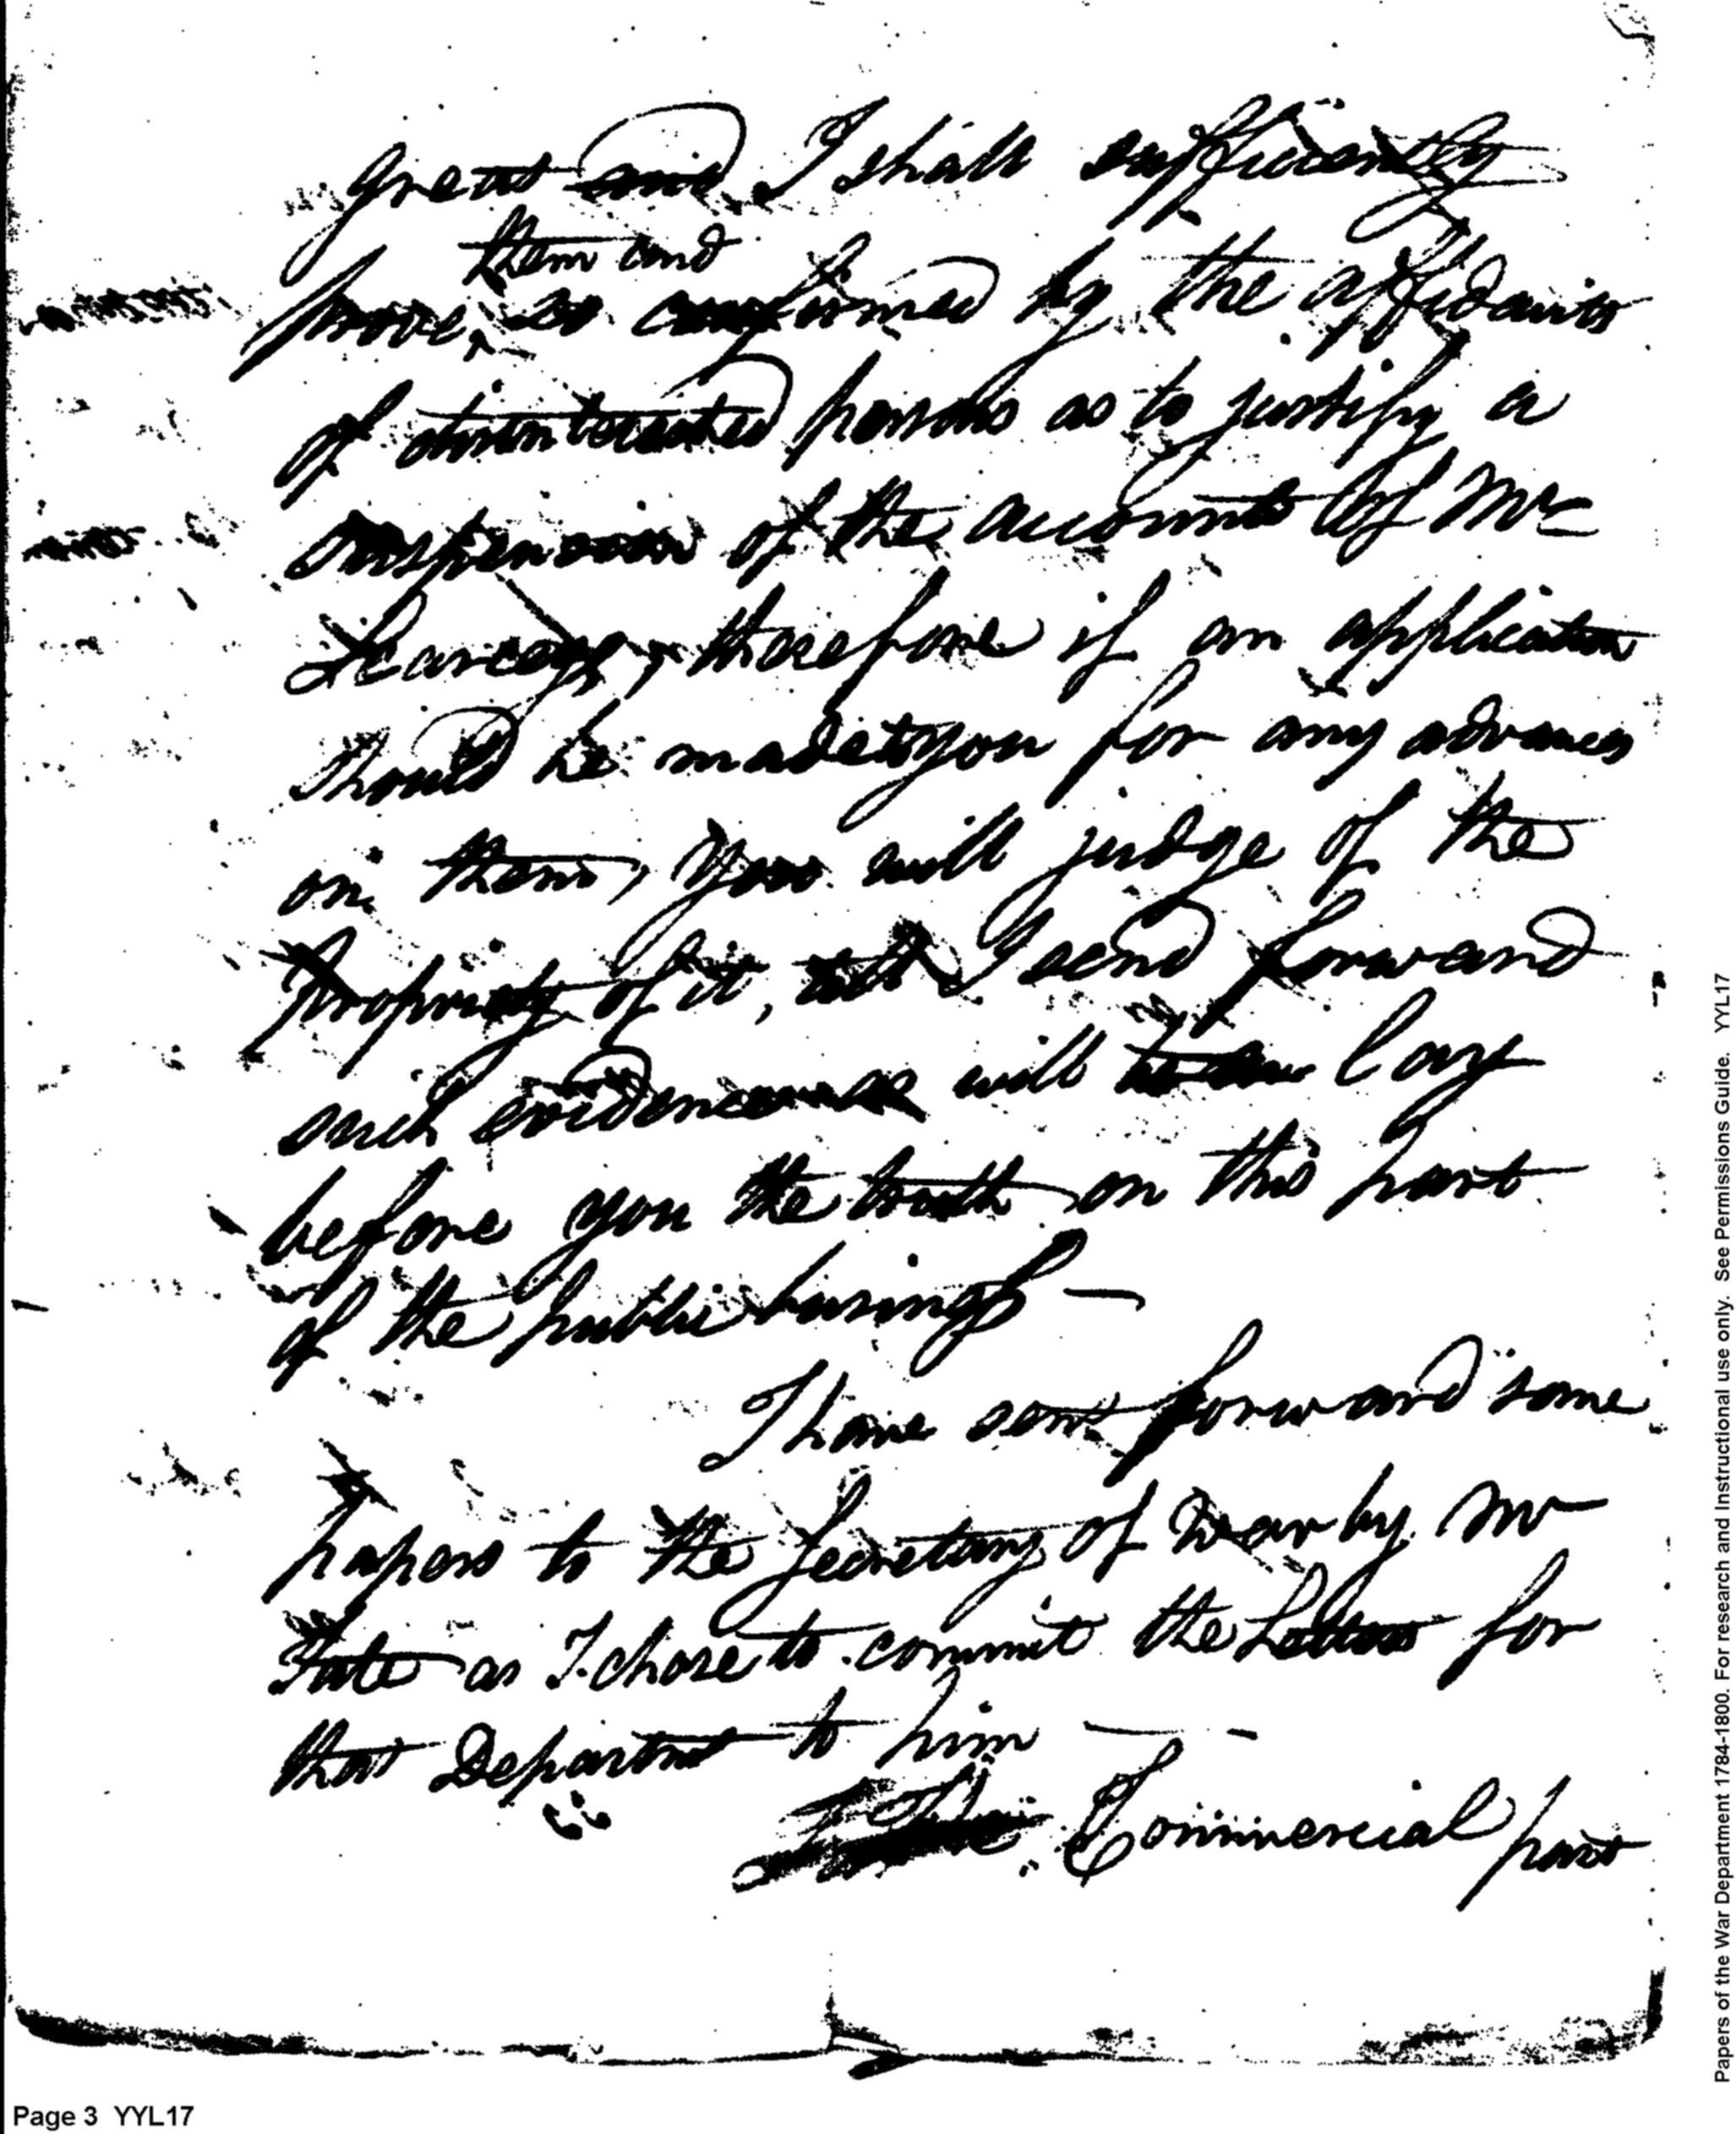 great and I shall sufficiently
them and
prove, so confirmed by the affidavits
of disinterested persons as to justify a
suspension of the accounts of Mr
therefore if an application
should be made to you for any advances
on them, you will judge of the
propriety of it, till I send forward
such evidence as will lay
before you the truth on this part
of the public business —
I have sent forward some
papers to the Secretary of War by Mr
Tate as I chose to commit the Letters for
that Department to him —
Commercial part
Page 3 YYL17
Papers of the War Department 1784-1800. For research and Instructional use only. See Permissions Guide. YYL17